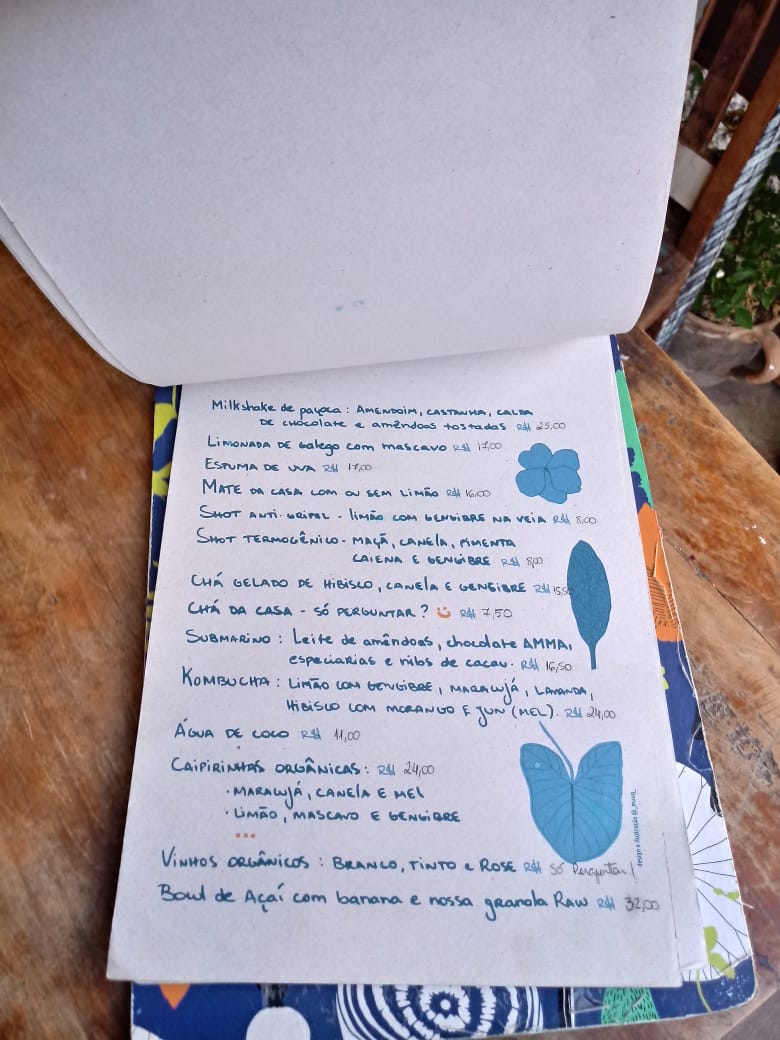 Milkshake de paçoca: AMENDOIM, CASTANHA, CALDA
DE chocolate e amêndoas tostadas R$ 25,00
LIMONADA DE Galego com mascavo R$ 17,00
ESPUMA DE UVA R$ 17,00
MATE DA CASA COM OU SEM LIMÃO R$ 16,00
SHOT ANTI-GRIPAL - LIMÃO COM GENGIBRE NA VEIA R$ 8,00
SHOT TERMOGÊNICO - MAÇÃ, CANELA, PIMENTA
CAIENA E GENGIBRE R$ 8,00
CHÁ GELADO DE HIBISCO, CANELA E GENGIBRE R$ 15,50
CHÁ DA CASA - SÓ PERGUNTAR? R$ 7,50
SUBMARINO: Leite de amêndoas, chocolate AMMA,
especiarias e nibs de cacau. R$ 16,50
KOMBUCHA: LIMÃO COM GENGIBRE, MARACUJÁ, LAVANDA,
HIBISCO COM MORANGO E JUN (MEL). R$ 24,00
ÁGUA DE COCO R$ 11,00
CAIPIRINHAS ORGÂNICAS: R$ 24,00
· MARACUJÁ, CANELA E MEL
· LIMÃO, MASCAVO E GENGIBRE
...
VINHOS ORGÂNICOS: BRANCO, TINTO e ROSE R$ Só Perguntar!
Bowl de Açaí com banana e nossa granola RAW R$ 32,00
design e ilustração